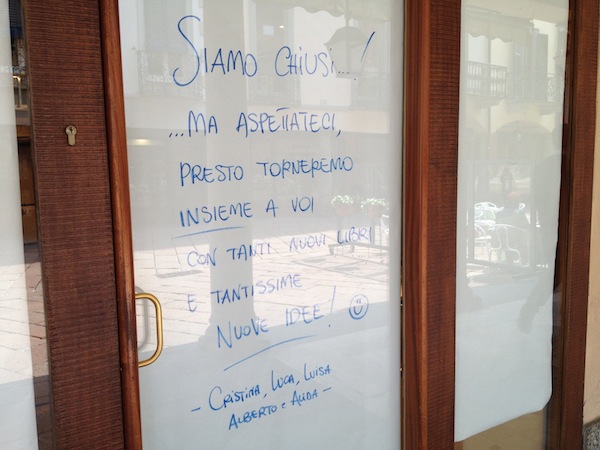 SIAMO CHIUSI...!
...MA ASPETTATECI,
PRESTO TORNEREMO
INSIEME A VOI
CON TANTI NUOVI LIBRI
E TANTISSIME
NUOVE IDEE!
- CRISTINA, LUCA, LUISA
ALBERTO e ALIDA -